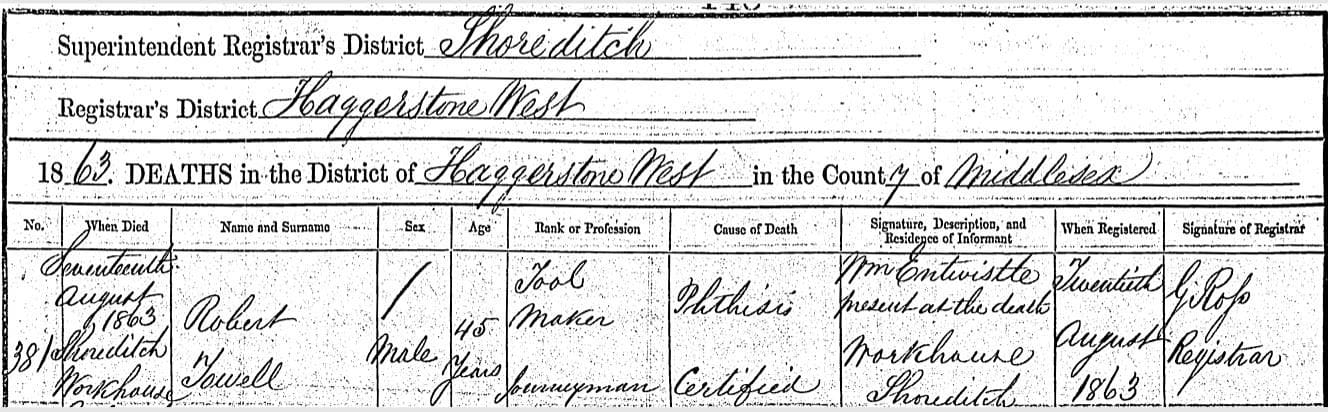 Superintendent Registrar's District Shoreditch
Registrar's District Haggerstone West
1863. DEATHS in the District of Haggerstone West in the County of Middlesex
No. When Died Name and Surname Sex Age Rank or Profession Cause of Death Signature, Description, and Residence of Informant When Registered Signature of Registrar
381
Seventeenth
August
1863
Shoreditch
Workhouse
Robert
Towell
Male
45
Years
Tool
Maker
Journeyman
Phthisis
Certified
Wm Entwistle
present at the death
Workhouse
Shoreditch
Twentieth
August
1863
G Ross
Registrar